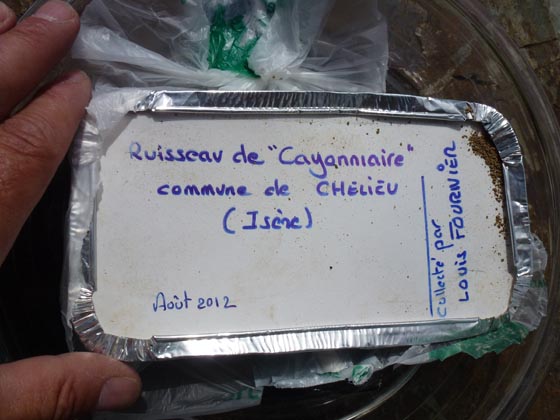 Ruisseau de "Cayanniaire"
commune de CHELIEU
(Isère)
Août 2012
Collecté par
LOUIS FOURNIER